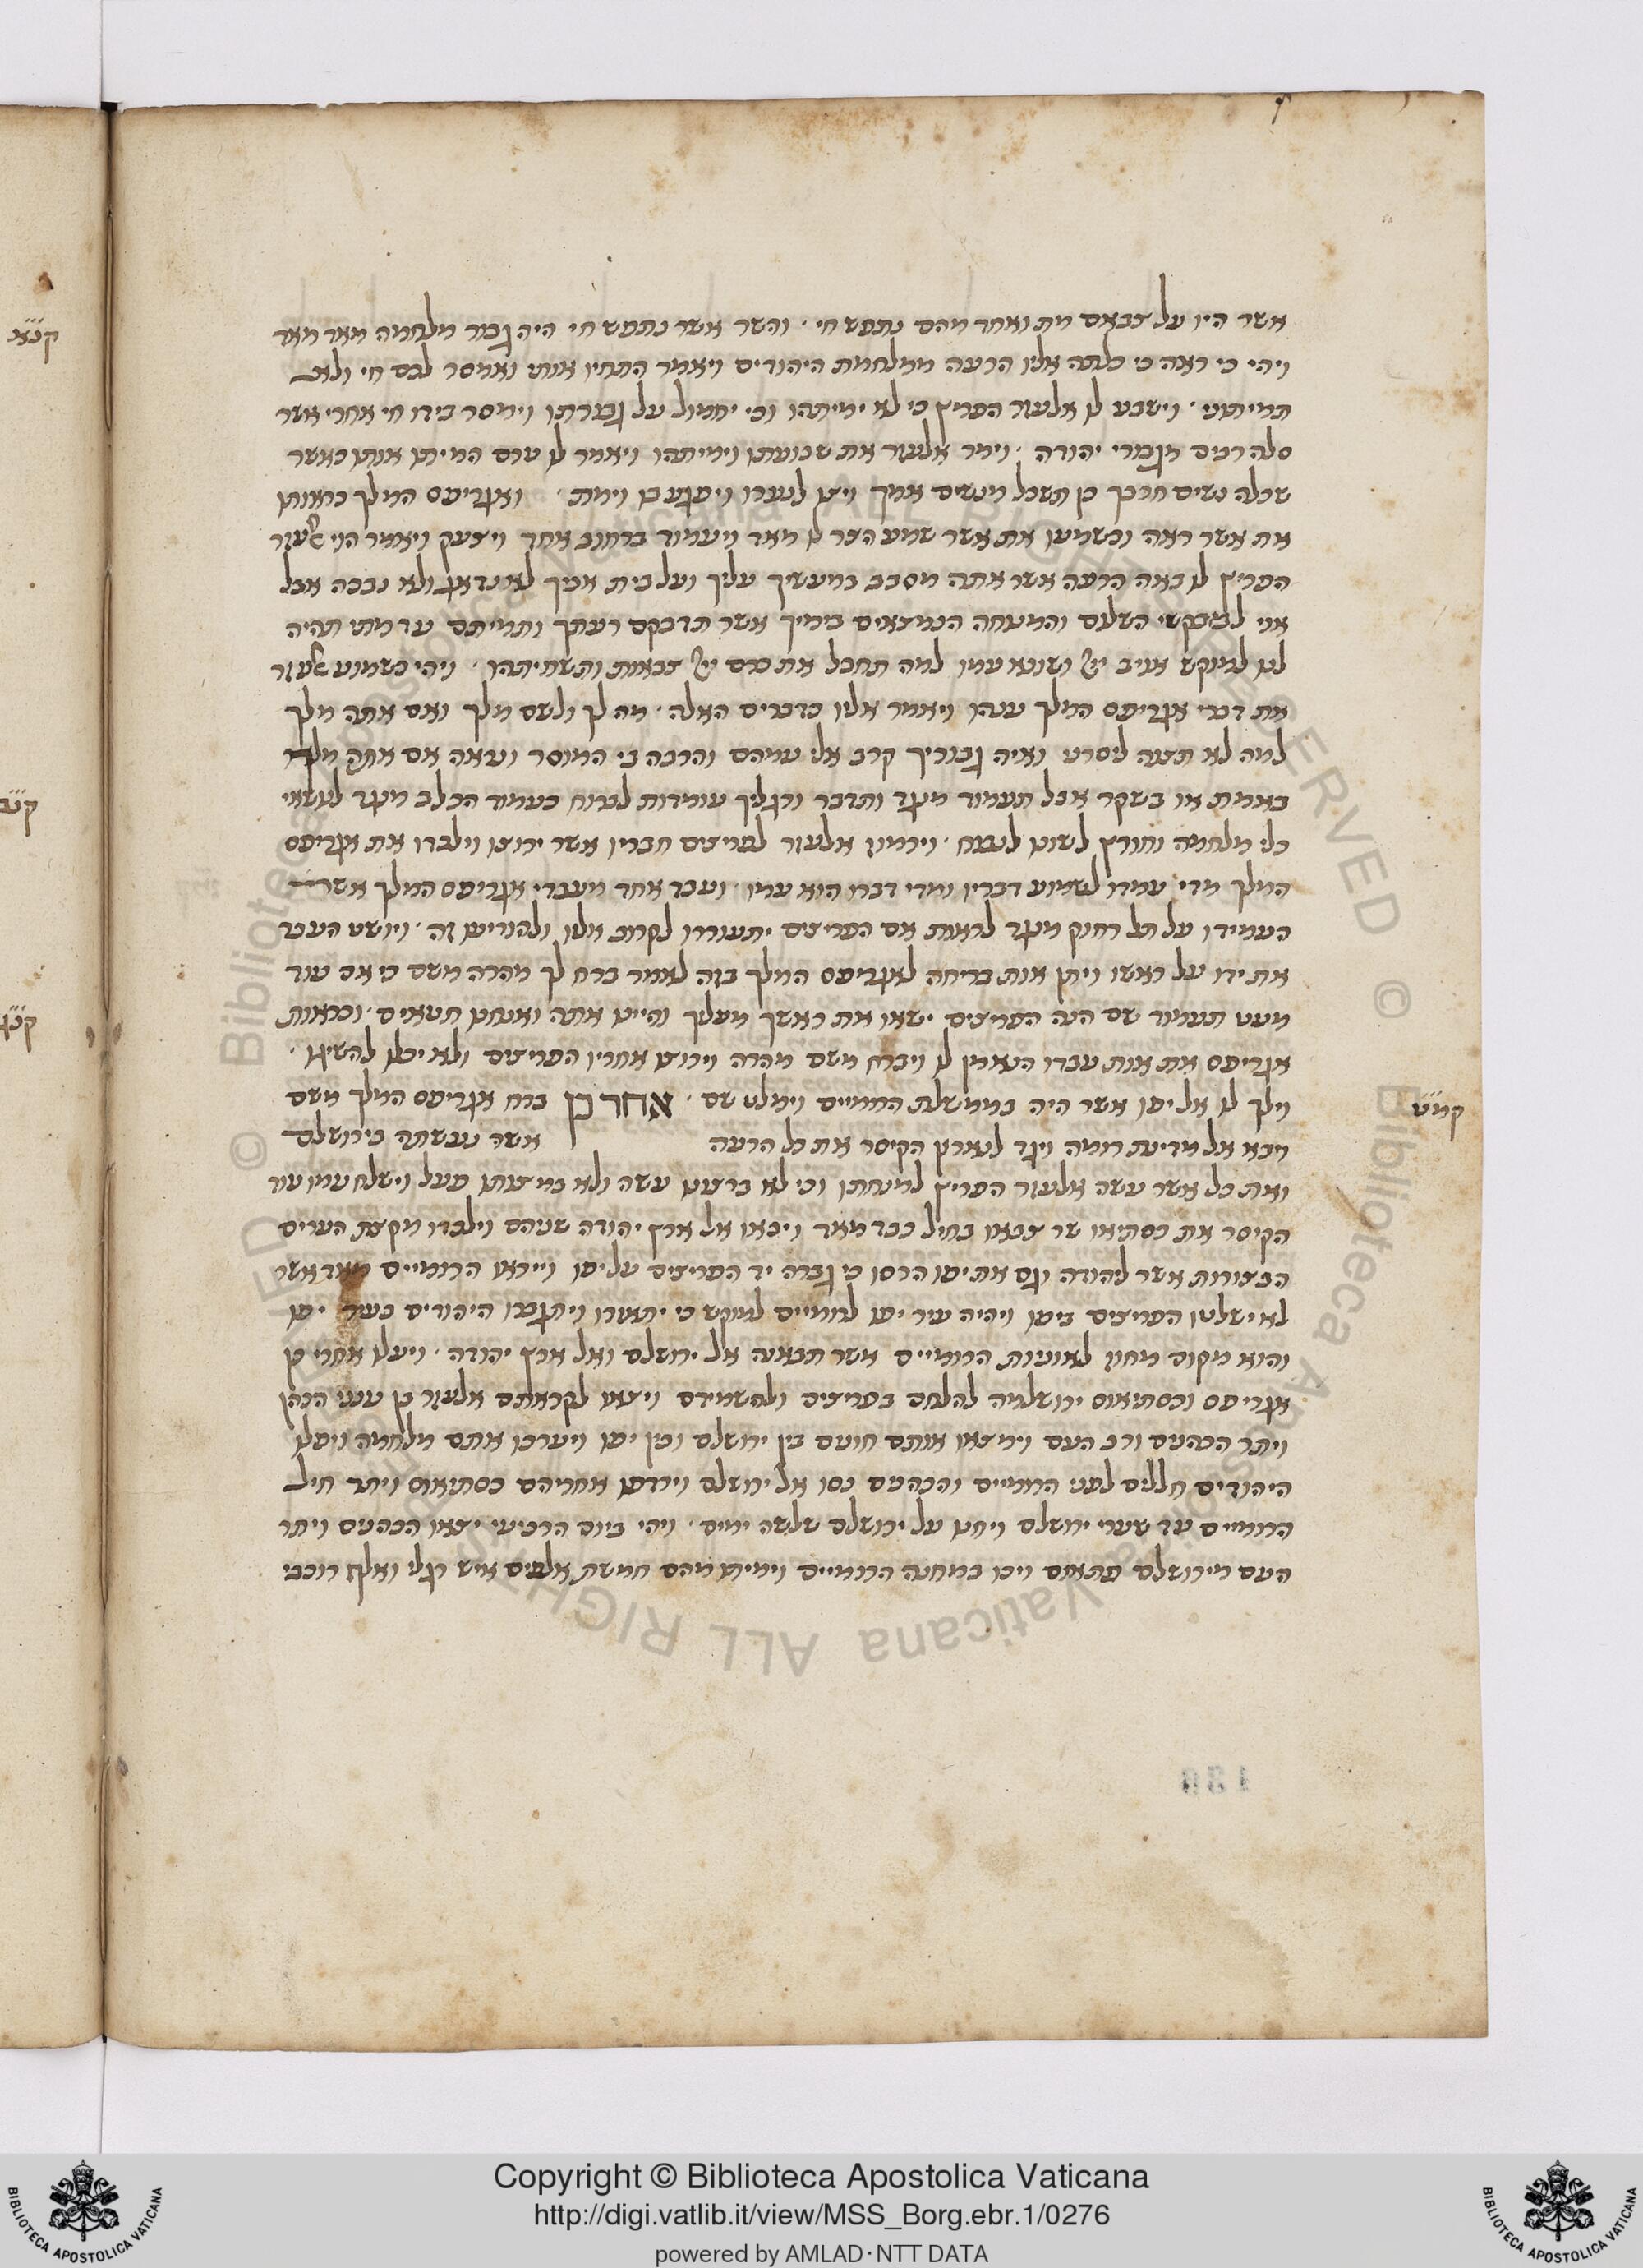 אשר היו על צבאם מת ואחד מהם נתפש חי · והשר אשר נתפש חי היה גבור מלחמה מאד מאד
ויהי כי ראה כי כלתה אליו הרעה ממלחמת היהודים ויאמר התחיו אותי ואמסר לכם חי ולא
תמיתוני · וישבע לו אלעזר הפריץ כי לא ימיתהו וכי יחמול על גבורתו וימסר בידו חי אחרי אשר
סלה רבים מגבורי יהודה · וימר אלעזר את שבועתו וימיתהו ויאמר לו טרם המיתו אותו כאשר
שכלה נשים חרבך כן תשכל מנשים אמך ויצו לנערו ויפגע בו וימת · ואגריפס המלך כראותו
את אשר ראה וכשמעו את אשר שמע הצר לו מאד ויעמוד ברחוב אחד ויצעק ויאמר הוי אלעזר
הפריץ לו באה הרעה אשר אתה מסבב במעשיך עליך ועל בית אביך לא נדאג ולא נבכה אבל
אני למבקשי השלום והמנוחה הנמצאים בימיך אשר תדבקם רעתך ותמיתם עד מתי תהיה
לנו למוקש אויב ושונא עמו למה תחבל את כרם צבאות ותשחיתהו · ויהי כשמוע אלעזר
את דברי אגריפס המלך ענהו ויאמר אליו כדברים האלה · מה לך ולשם מלך ואם אתה מלך
למה לא תצוה ליסרני ואיה גבוריך קרב אלי עמהם והרבה בי המוסר ונראה אם אתה מלך
באמת או בשקר אבל תעמוד מנגד ותדבר ורגליך עומדות לברוח כעמוד הכלב מנגד לנושאי
כלי מלחמה וחורץ לשונו לנבוח · וירמוז אלעזר לפריצים חבריו אשר ירוצו וילכדו את אגריפס
המלך מדי עמדו לשמוע דבריו ומדי דברו הוא עמו · ועבד אחד מעבדי אגריפס המלך אשר
העמידו על תל רחוק מנגד לראות אם הפריצים יתעוררו לקרוב אליו ולהודיעו זה · ויושט העבד
את ידו על ראשו ויתן אות בריחה לאגריפס המלך בזה לאמר ברח לך מהרה משם כי אם עוד
מעט תעמוד שם הנה הפריצים ישאו את ראשך מעליך והיית אתה ואנחנו חטאים · וכראות
אגריפס את אות עבדו הנאמן לו ויברח משם מהרה וירוצו אחריו הפריצים ולא יכלו להשיגו ·
וילך לו אל יפו אשר היה בממשלת הרומיים וימלט שם · אחר כן ברח אגריפס המלך משם
ויבא אל מדינת רומה ויגד לנארון הקיסר את כל הרעה אשר נעשתה בירושלם
ואת כל אשר עשה אלעזר הפריץ למנחתו וכי לא ברצונו עשה ולא במצותו פעל וישלח עמו עוד
הקיסר את כסתיאו שר צבאו בחיל כבד מאד ויבאו אל ארץ יהודה שניהם וילכדו מקצת הערים
הבצורות אשר ליהודה וגם את יפו הרסו כי גברה יד הפריצים על יפו וייראו הרומיים מאד אשר
לא ישלטו הפריצים ביפו ויהיה עיר יפו לרומיים למוקש כי יתאזרו ויתגברו היהודים בעיר יפו
והוא מקום מחוז לאוניות הרומיים אשר תבאנה אל ירושלם ואל ארץ יהודה · ויעלו אחרי כן
אגריפס וכסתיאוס ירושלמה להלחם בפריצים ולהשמידם ויצאו לקראתם אלעזר בן ענני הכהן
ויתר הכהנים ורב העם וימצאו אותם חונים בין ירושלם ובין יפו ויערכו אתם מלחמה ויפלו
היהודים חללים לפני הרומיים והכהנים נסו אל ירושלם וירדפו אחריהם כסתיאוס ויתר חיל
הרומיים עד שערי ירושלם ויחנו על ירושלם שלשה ימים · ויהי ביום הרביעי יצאו הכהנים ויתר
העם מירושלם פתאום ויכו במחנה הרומיים וימיתו מהם חמשת אלפים איש רגלי ואלף רוכבי
קמ״ט
קנ״א
קנ״ב
קנ״ג
© Biblioteca Apostolica Vaticana ALL RIGHTS RESERVED
Copyright © Biblioteca Apostolica Vaticana
http://digi.vatlib.it/view/MSS_Borg.ebr.1/0276
powered by AMLAD·NTT DATA
BIBLIOTECA APOSTOLICA VATICANA
BIBLIOTECA APOSTOLICA VATICANA